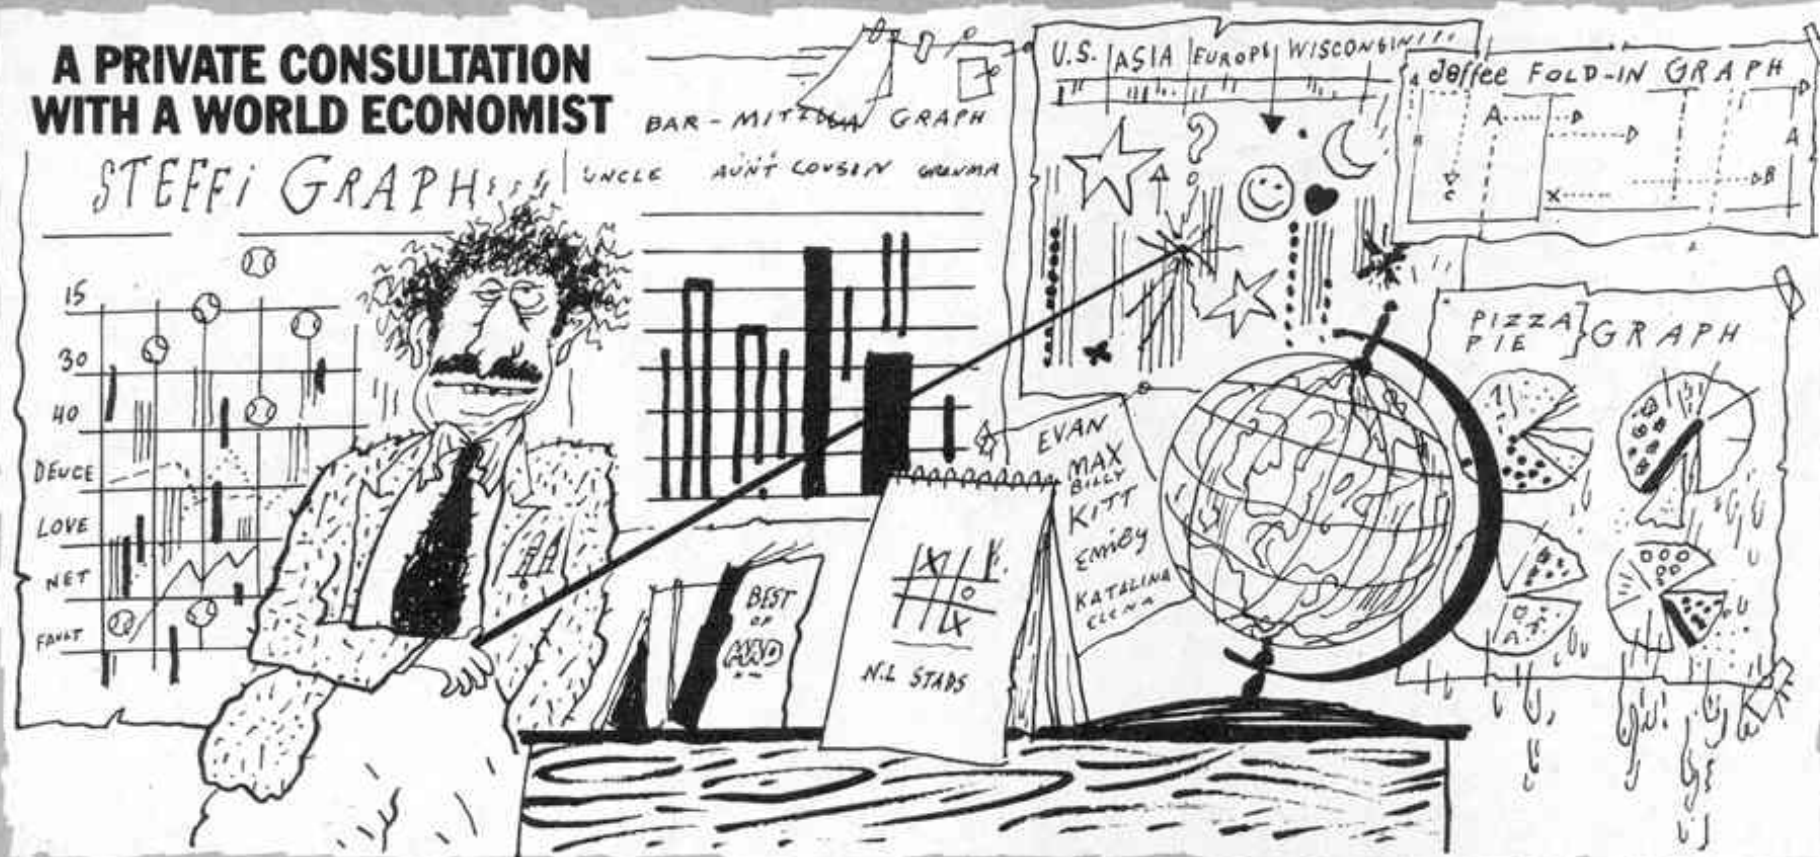 A PRIVATE CONSULTATION
WITH A WORLD ECONOMIST
STEFFi GRAPH
15
30
40
DEUCE
LOVE
NET
FAULT
BAR-MITZVA GRAPH
UNCLE AUNT COUSIN GRANMA
U.S. ASIA EUROPE WISCONSIN
Jaffee FOLD-IN GRAPH
A
B
A
B
C
X
PIZZA
PIE
GRAPH
EVAN
MAX
BILLY
KITT
EMILY
KATALINA
ELENA
BEST
OF
MAD
X
O
X
N.L STABS